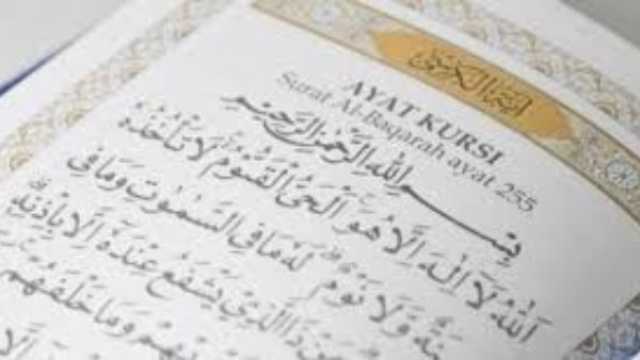 آية الكرسي
AYAT KURSI
Surat Al-Baqarah ayat 255
بِسْمِ اللهِ الرَّحْمٰنِ الرَّحِيْمِ
اَللهُ لَآ اِلٰهَ اِلَّا هُوَ الْحَيُّ الْقَيُّوْمُ لَا تَأْخُذُهٗ
سِنَةٌ وَّلَا نَوْمٌ لَهٗ مَا فِى السَّمٰوٰتِ وَمَا فِى
مَنْ ذَا الَّذِيْ يَشْفَعُ عِنْدَهٗٓ اِلَّا بِاِذْنِهٖ
وَمَا خَلْفَهُمْ